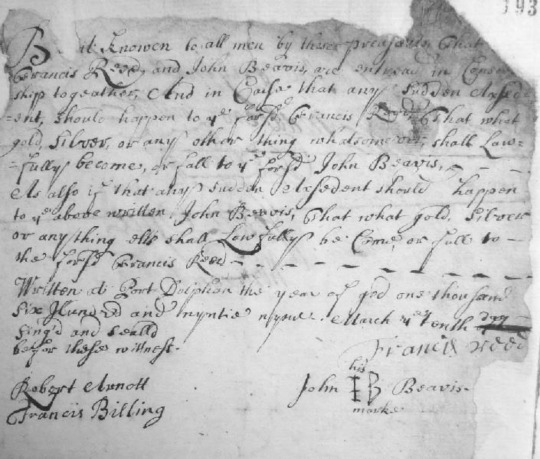 193
Be it Knowen to all men by these presents, that
Francis Reed, and John Beavis, are entred in Consort
ship togeather, And in Caise that any Sudden Axsed
ent, should happen to ye forsd Francis Reed, that what
gold, silver, or any other thing whatsomever, shall Law-
fully become, or fall to ye forsd John Beavis,
As also if that any sudden Axsedent should happen
to ye above written, John Beavis, that what gold, silver
or anything else shall Lawfully be Come, or fall to
the forsd Francis Reed
Written at Port Dolphin the year of god one thousand
six Hundred and nyntie nyne. March ye tenth day
Sing'd and sealld
befor these wittness.
Francis Reed
his
Robert Arnott
John IB Beavis
Francis Billing
marke